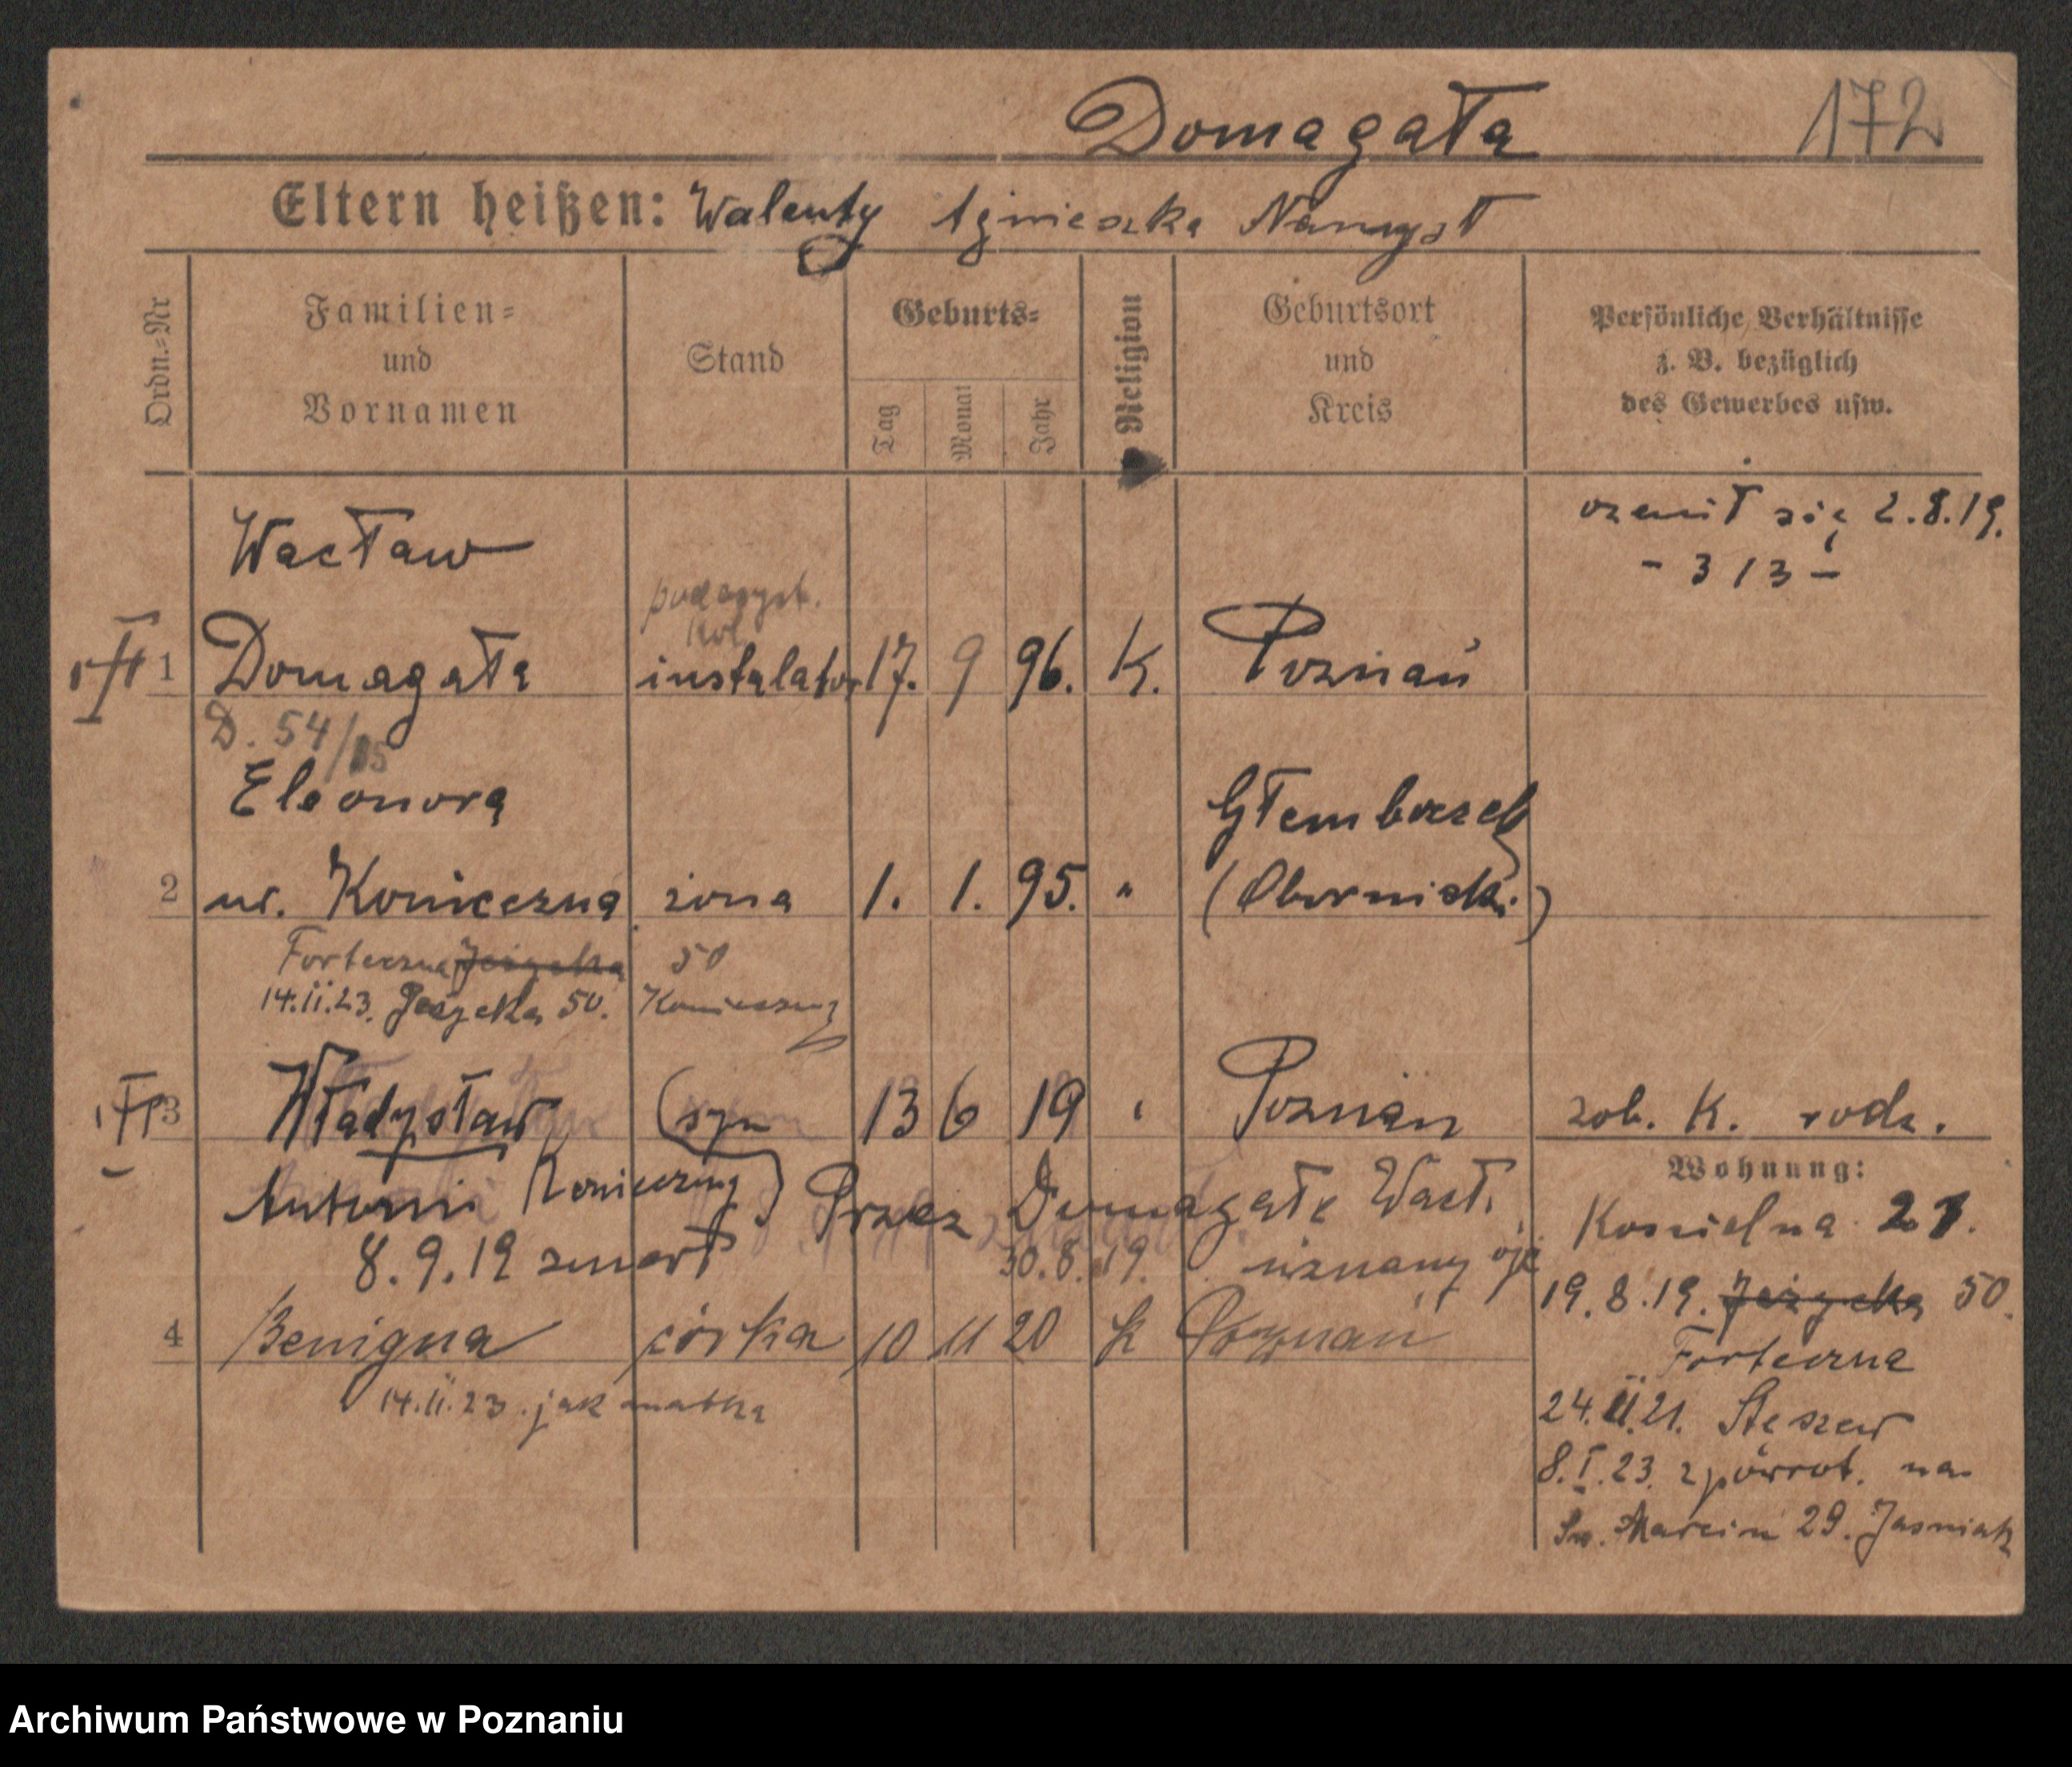 Domagała 172
Eltern heißen: Walenty Agnieszka Namyst
Ordn.-Nr
Familien-
und
Vornamen
Stand
Geburts-
Tag
Monat
Jahr
Religion
Geburtsort
und
Kreis
Persönliche Verhältnisse
z. B. bezüglich
des Gewerbes usw.
Wacław
ożenił się 2.8.19.
- 313 -
1 Domagała instalator 17. 9 96. K. Poznań
D. 54/
Eleonora Głemboczek
2 ur. Konieczna żona 1. 1. 95. " (Obornicki)
Forteczna Jeżycka 50
14.II.23. Jeżycka 50. Konieczny
3 Władysław (syn 13 6 19 " Poznań zob. K. rodz.
Antoni Konieczny) Przez Domagałę Wacł.
30.8.19. uznany
8.9.19 zmarł
4 Benigna córka 10 11 20 k Poznań
14.II.23. jak matka
Wohnung:
Kościelna 21.
19.8.19. Jeżycka 50.
Forteczna
24.II.21. Stęszew
8.I.23. zpowrot. na
Św. Marcin 29. Jasniak
Archiwum Państwowe w Poznaniu